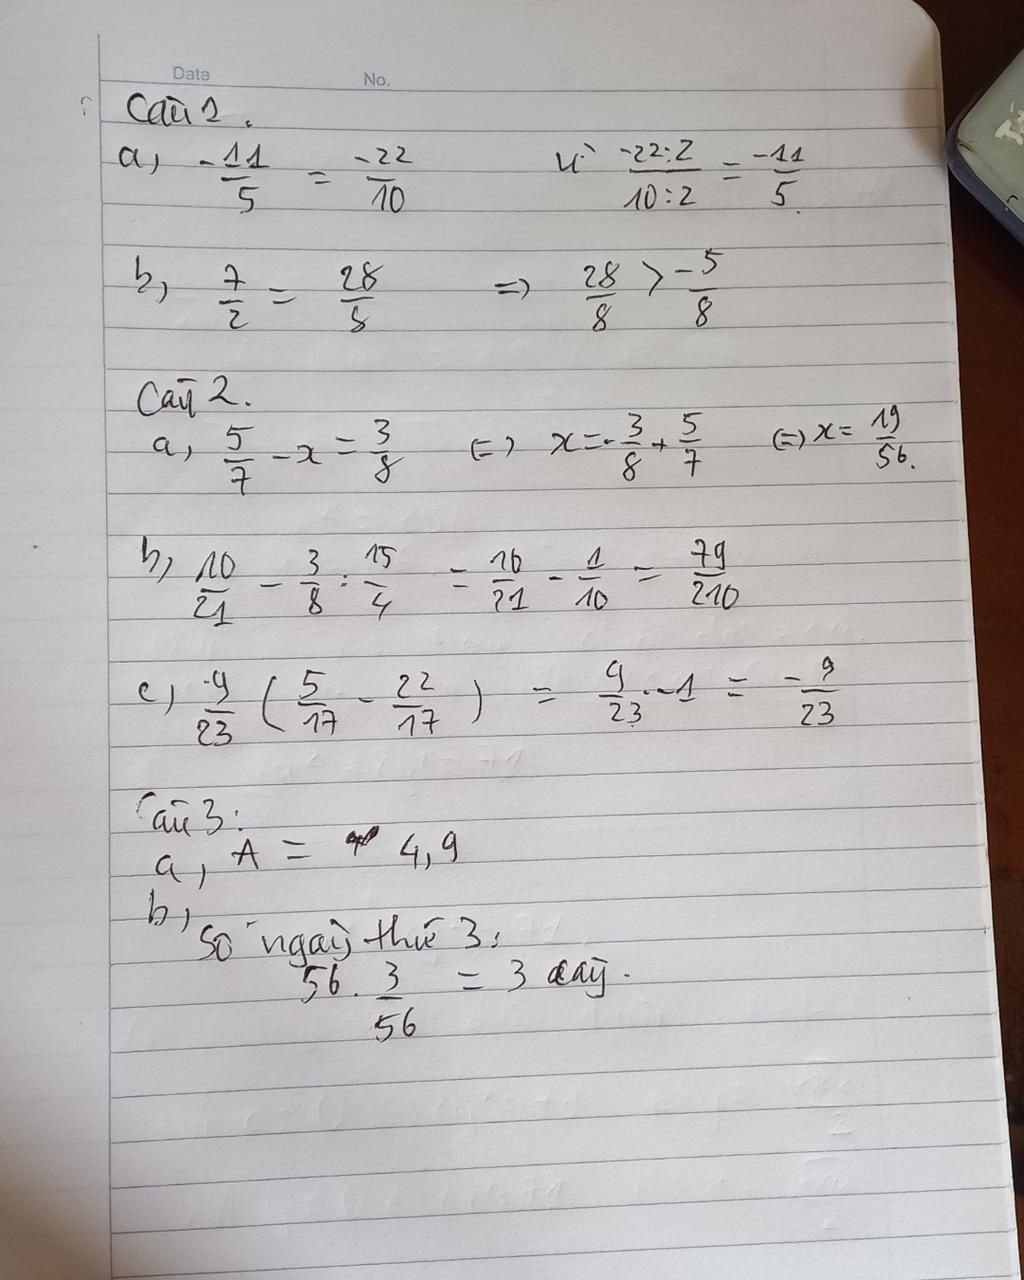 Date No.
Câu 1.
a, -11/5 = -22/10 vì -22:2/10:2 = -11/5.
b, 7/2 = 28/8 => 28/8 > -5/8
Câu 2.
a, 5/7 - x = 3/8 (=) x = -3/8 + 5/7 (=) x = 19/56.
b, 10/21 - 3/8 : 15/4 = 10/21 - 1/10 = 79/210
c, 9/23 ( 5/17 - 22/17 ) = 9/23 . -1 = -9/23
Câu 3:
a, A = 4,9
b,
Số ngày thứ 3:
56 . 3/56 = 3 cây.